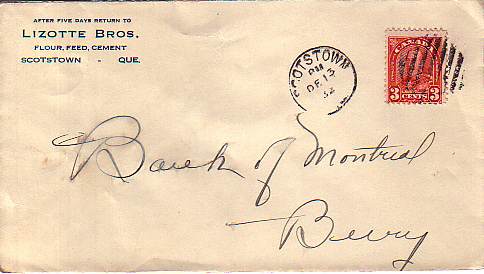 AFTER FIVE DAYS RETURN TO
LIZOTTE BROS.
FLOUR, FEED, CEMENT
SCOTSTOWN - QUE.
SCOTSTOWN
PM
DE 13
32
CANADA
3 CENTS 3
Bank of Montreal
Bury